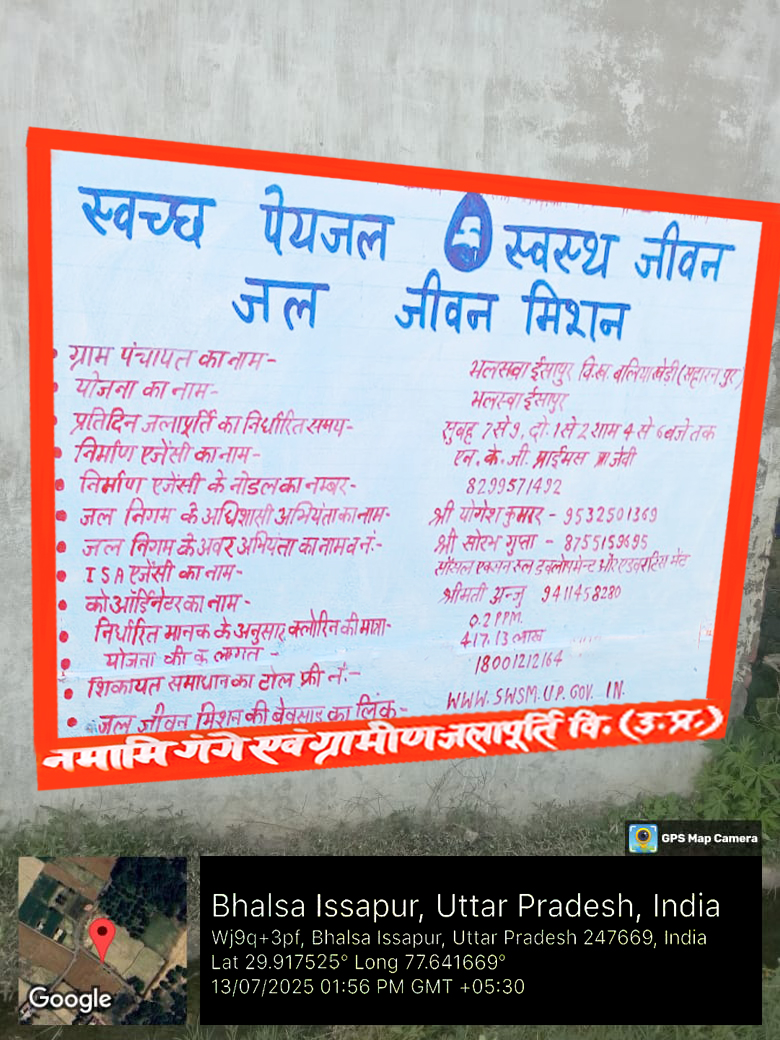 स्वच्छ पेयजल स्वस्थ जीवन
जल जीवन मिशन
ग्राम पंचायत का नाम- भलसवा ईसापुर वि.ख. बलियाखेड़ी (सहारनपुर)
योजना का नाम- भलस्वा ईसापुर
प्रतिदिन जलापूर्ति का निर्धारित समय- सुबह 7 से 9, दो. 1 से 2 शाम 4 से 6 बजे तक
निर्माण एजेंसी का नाम- एन. के. जी. प्राईमस जेवी
निर्माण एजेंसी के नोडल का नम्बर- 8299571492
जल निगम के अधिशासी अभियंता का नाम- श्री योगेश कुमार - 9532501369
जल निगम के अवर अभियंता का नाम व नं.- श्री सोरभ गुप्ता - 8755159695
ISA एजेंसी का नाम- सोशल एक्शन रूल डवलोपमेन्ट ओर एडवरटिस मेंट
को ऑर्डिनेटर का नाम- श्रीमती अन्जु 9411458280
निर्धारित मानक के अनुसार क्लोरिन की मात्रा- 0.2 PPM
योजना की कु लागत - 417.13 लाख
शिकायत समाधान का टोल फ्री नं.- 18001212164
जल जीवन मिशन की बेवसाइ का लिंक- WWW.SWSM.UP.GOV. IN.
नमामि गंगे एवं ग्रामीण जलापूर्ति वि. (उ.प्र.)
GPS Map Camera
Bhalsa Issapur, Uttar Pradesh, India
Wj9q+3pf, Bhalsa Issapur, Uttar Pradesh 247669, India
Lat 29.917525° Long 77.641669°
13/07/2025 01:56 PM GMT +05:30
Google